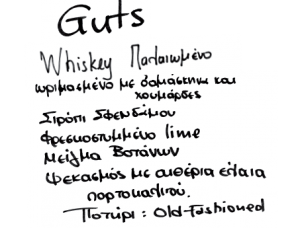 Guts
Whiskey Παλαιωμένο
ωριμασμένο με δαμάσκηνα και
χουρμάδες
Σιρόπι Σφενδάμου
Φρεσκοστυμμένο lime
Μείγμα Βοτάνων
Ψεκασμός με αιθέρια έλαια
πορτοκαλιού.
Ποτήρι : Old-Fashioned